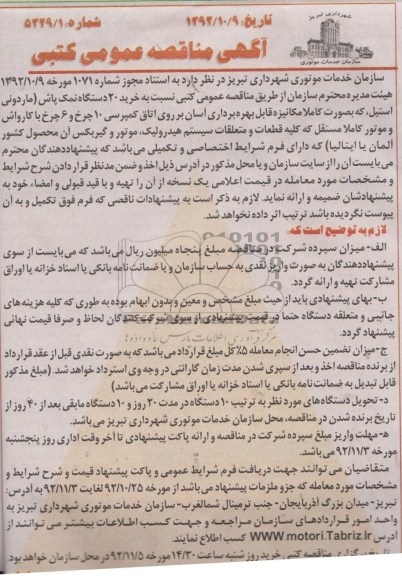 شهرداری تبریز
سازمان خدمات موتوری
تاریخ: ۱۳۹۲/۱۰/۹
شماره: ۵۳۲۹/۱
آگهی مناقصه عمومی کتبی
سازمان خدمات موتوری شهرداری تبریز در نظر دارد به استناد مجوز شماره ۱۰۷۱ مورخه ۱۳۹۲/۱۰/۹
هیئت مدیره محترم سازمان از طریق مناقصه عمومی کتبی نسبت به خرید ۲۰ دستگاه نمک پاش (ماردونی
استیل، که بصورت کاملا مکانیزه قابل بهره برداری آسان بر روی اتاق کمپرسی ۱۰ چرخ و ۶ چرخ با کارواش
و موتور کاملا مستقل که کلیه قطعات و متعلقات سیستم هیدرولیک، موتور و گیربکس آن محصول کشور
آلمان یا ایتالیا) که دارای فرم شرایط اختصاصی و تکمیلی می باشد که پیشنهاددهندگان محترم
می بایست آن را از سایت سازمان و یا محل مذکور در آدرس ذیل اخذ و ضمن مدنظر قرار دادن شرح شرایط
و مشخصات مورد معامله در قیمت اعلامی یک نسخه از آن را تهیه و با قید قبولی و امضاء خود به
پیشنهادشان ضمیمه و ارائه نماید. لازم به ذکر است به پیشنهادات ناقصی که فرم فوق تکمیل و به آن
پیوست نگردیده باشد ترتیب اثر داده نخواهد شد.
لازم به توضیح است که:
الف- میزان سپرده شرکت در مناقصه مبلغ پنجاه میلیون ریال می باشد که می بایست از سوی
پیشنهاددهندگان به صورت واریز نقدی به حساب سازمان و یا ضمانت نامه بانکی یا اسناد خزانه یا اوراق
مشارکت تهیه و ارائه گردد.
ب- بهای پیشنهادی باید از حیث مبلغ مشخص و معین و بدون ابهام بوده به طوری که کلیه هزینه های
جانبی و متعلقه دستگاه حتما در قیمت پیشنهادی از سوی شرکت کنندگان لحاظ و صرفا قیمت نهائی
پیشنهاد گردد.
ج- میزان تضمین حسن انجام معامله ۵٪ کل مبلغ قرارداد می باشد که به صورت نقدی قبل از عقد قرارداد
از برنده مناقصه اخذ و بعد از سپری شدن مدت زمان گارانتی در وجه وی استرداد خواهد شد. (مبلغ مذکور
قابل تبدیل به ضمانت نامه بانکی یا اسناد خزانه یا اوراق مشارکت می باشد)
د- تحویل دستگاه های مورد نظر به ترتیب ۱۰ دستگاه در مدت ۲۰ روز و ۱۰ دستگاه مابقی بعد از ۴۰ روز از
تاریخ برنده شدن در مناقصه، محل سازمان خدمات موتوری شهرداری تبریز می باشد.
ه- مهلت واریز مبلغ سپرده شرکت در مناقصه و ارائه پاکت پیشنهادی تا آخر وقت اداری روز پنجشنبه
مورخه ۹۲/۱۱/۳ می باشد.
متقاضیان می توانند جهت دریافت فرم شرایط عمومی و پاکت پیشنهاد قیمت و شرح شرایط و
مشخصات مورد معامله که جزو ملزمات پیشنهاد می باشد از مورخه ۹۲/۱۰/۲۵ لغایت ۹۲/۱۱/۳ به آدرس:
تبریز- میدان بزرگ آذربایجان- جنب ترمینال شمالغرب- سازمان خدمات موتوری شهرداری تبریز به
واحد امور قراردادهای سازمان مراجعه و جهت کسب اطلاعات بیشتر می توانند از
آدرس WWW.motori.Tabriz.Ir کسب اطلاع نمایند.
برگزاری مناقصه کتبی خرید روز شنبه ساعت ۱۴/۳۰ مورخه ۹۲/۱۱/۵ در محل سازمان خواهد بود.